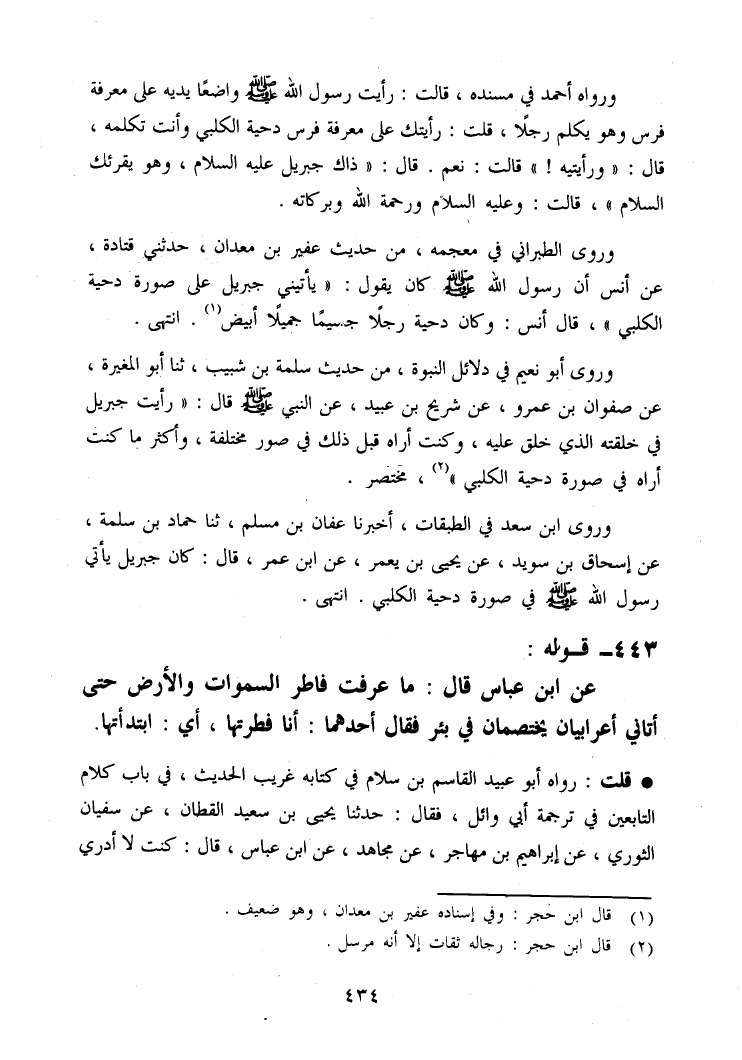 ورواه أحمد في مسنده ، قالت : رأيت رسول الله ﷺ واضعًا يديه على معرفة
فرس وهو يكلم رجلًا ، قلت : رأيتك على معرفة فرس دحية الكلبي وأنت تكلمه ،
قال : « ورأيتيه ! » قالت : نعم . قال : « ذاك جبريل عليه السلام ، وهو يقرئك
السلام » ، قالت : وعليه السلام ورحمة الله وبركاته .
وروى الطبراني في معجمه ، من حديث عفير بن معدان ، حدثني قتادة ،
عن أنس أن رسول الله ﷺ كان يقول : « يأتيني جبريل على صورة دحية
الكلبي » ، قال أنس : وكان دحية رجلًا جسيمًا جميلًا أبيض(١) . انتهى .
وروى أبو نعيم في دلائل النبوة ، من حديث سلمة بن شبيب ، ثنا أبو المغيرة ،
عن صفوان بن عمرو ، عن شريح بن عبيد ، عن النبي ﷺ قال : « رأيت جبريل
في خلقته الذي خلق عليه ، وكنت أراه قبل ذلك في صور مختلفة ، وأكثر ما كنت
أراه في صورة دحية الكلبي »(٢) ، مختصر .
وروى ابن سعد في الطبقات ، أخبرنا عفان بن مسلم ، ثنا حماد بن سلمة ،
عن إسحاق بن سويد ، عن يحيى بن يعمر ، عن ابن عمر ، قال : كان جبريل يأتي
رسول الله ﷺ في صورة دحية الكلبي . انتهى .
٤٤٣- قـولـه :
عن ابن عباس قال : ما عرفت فاطر السموات والأرض حتى
أتاني أعرابيان يختصمان في بئر فقال أحدهما : أنا فطرتها ، أي : ابتدأتها.
● قلت : رواه أبو عبيد القاسم بن سلام في كتابه غريب الحديث ، في باب كلام
التابعين في ترجمة أبي وائل ، فقال : حدثنا يحيى بن سعيد القطان ، عن سفيان
الثوري ، عن إبراهيم بن مهاجر ، عن مجاهد ، عن ابن عباس ، قال : كنت لا أدري
(١) قال ابن حجر : وفي إسناده عفير بن معدان ، وهو ضعيف .
(٢) قال ابن حجر : رجاله ثقات إلا أنه مرسل .
٤٣٤